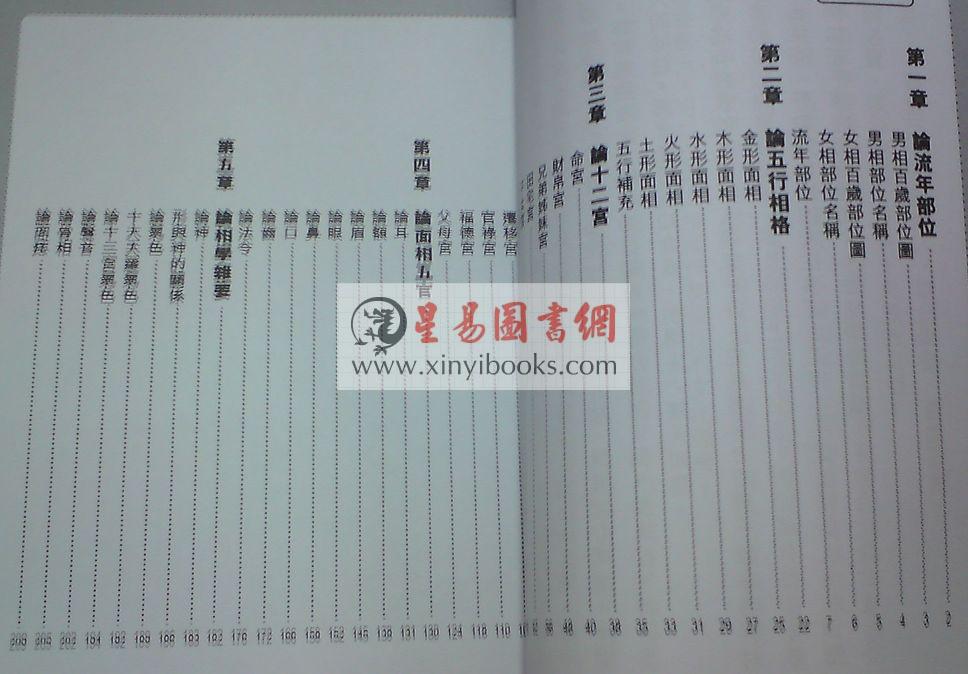 第一章 論流年部位 2
男相百歲部位圖 3
男相部位名稱 4
女相百歲部位圖 5
女相部位名稱 6
流年部位 7
第二章 論五行相格 22
金形面相 25
木形面相 27
水形面相 29
火形面相 31
土形面相 33
五行補充 35
第三章 論十二宮 38
命宮 40
財帛宮 48
兄弟姊妹宮
田宅宮
遷移宮
官祿宮 110
福德宮 118
父母宮 124
第四章 論面相五官 130
論耳 131
論額 138
論眉 145
論眼 152
論鼻 158
論口 166
論齒 172
論法令 176
第五章 論相學雜要 182
論神 183
形與神的關係 186
論氣色 189
十天大羅氣色 192
論十三宮氣色 194
論聲音 202
論骨相 205
論面痣 209
星易圖書網
www.xinyibooks.com